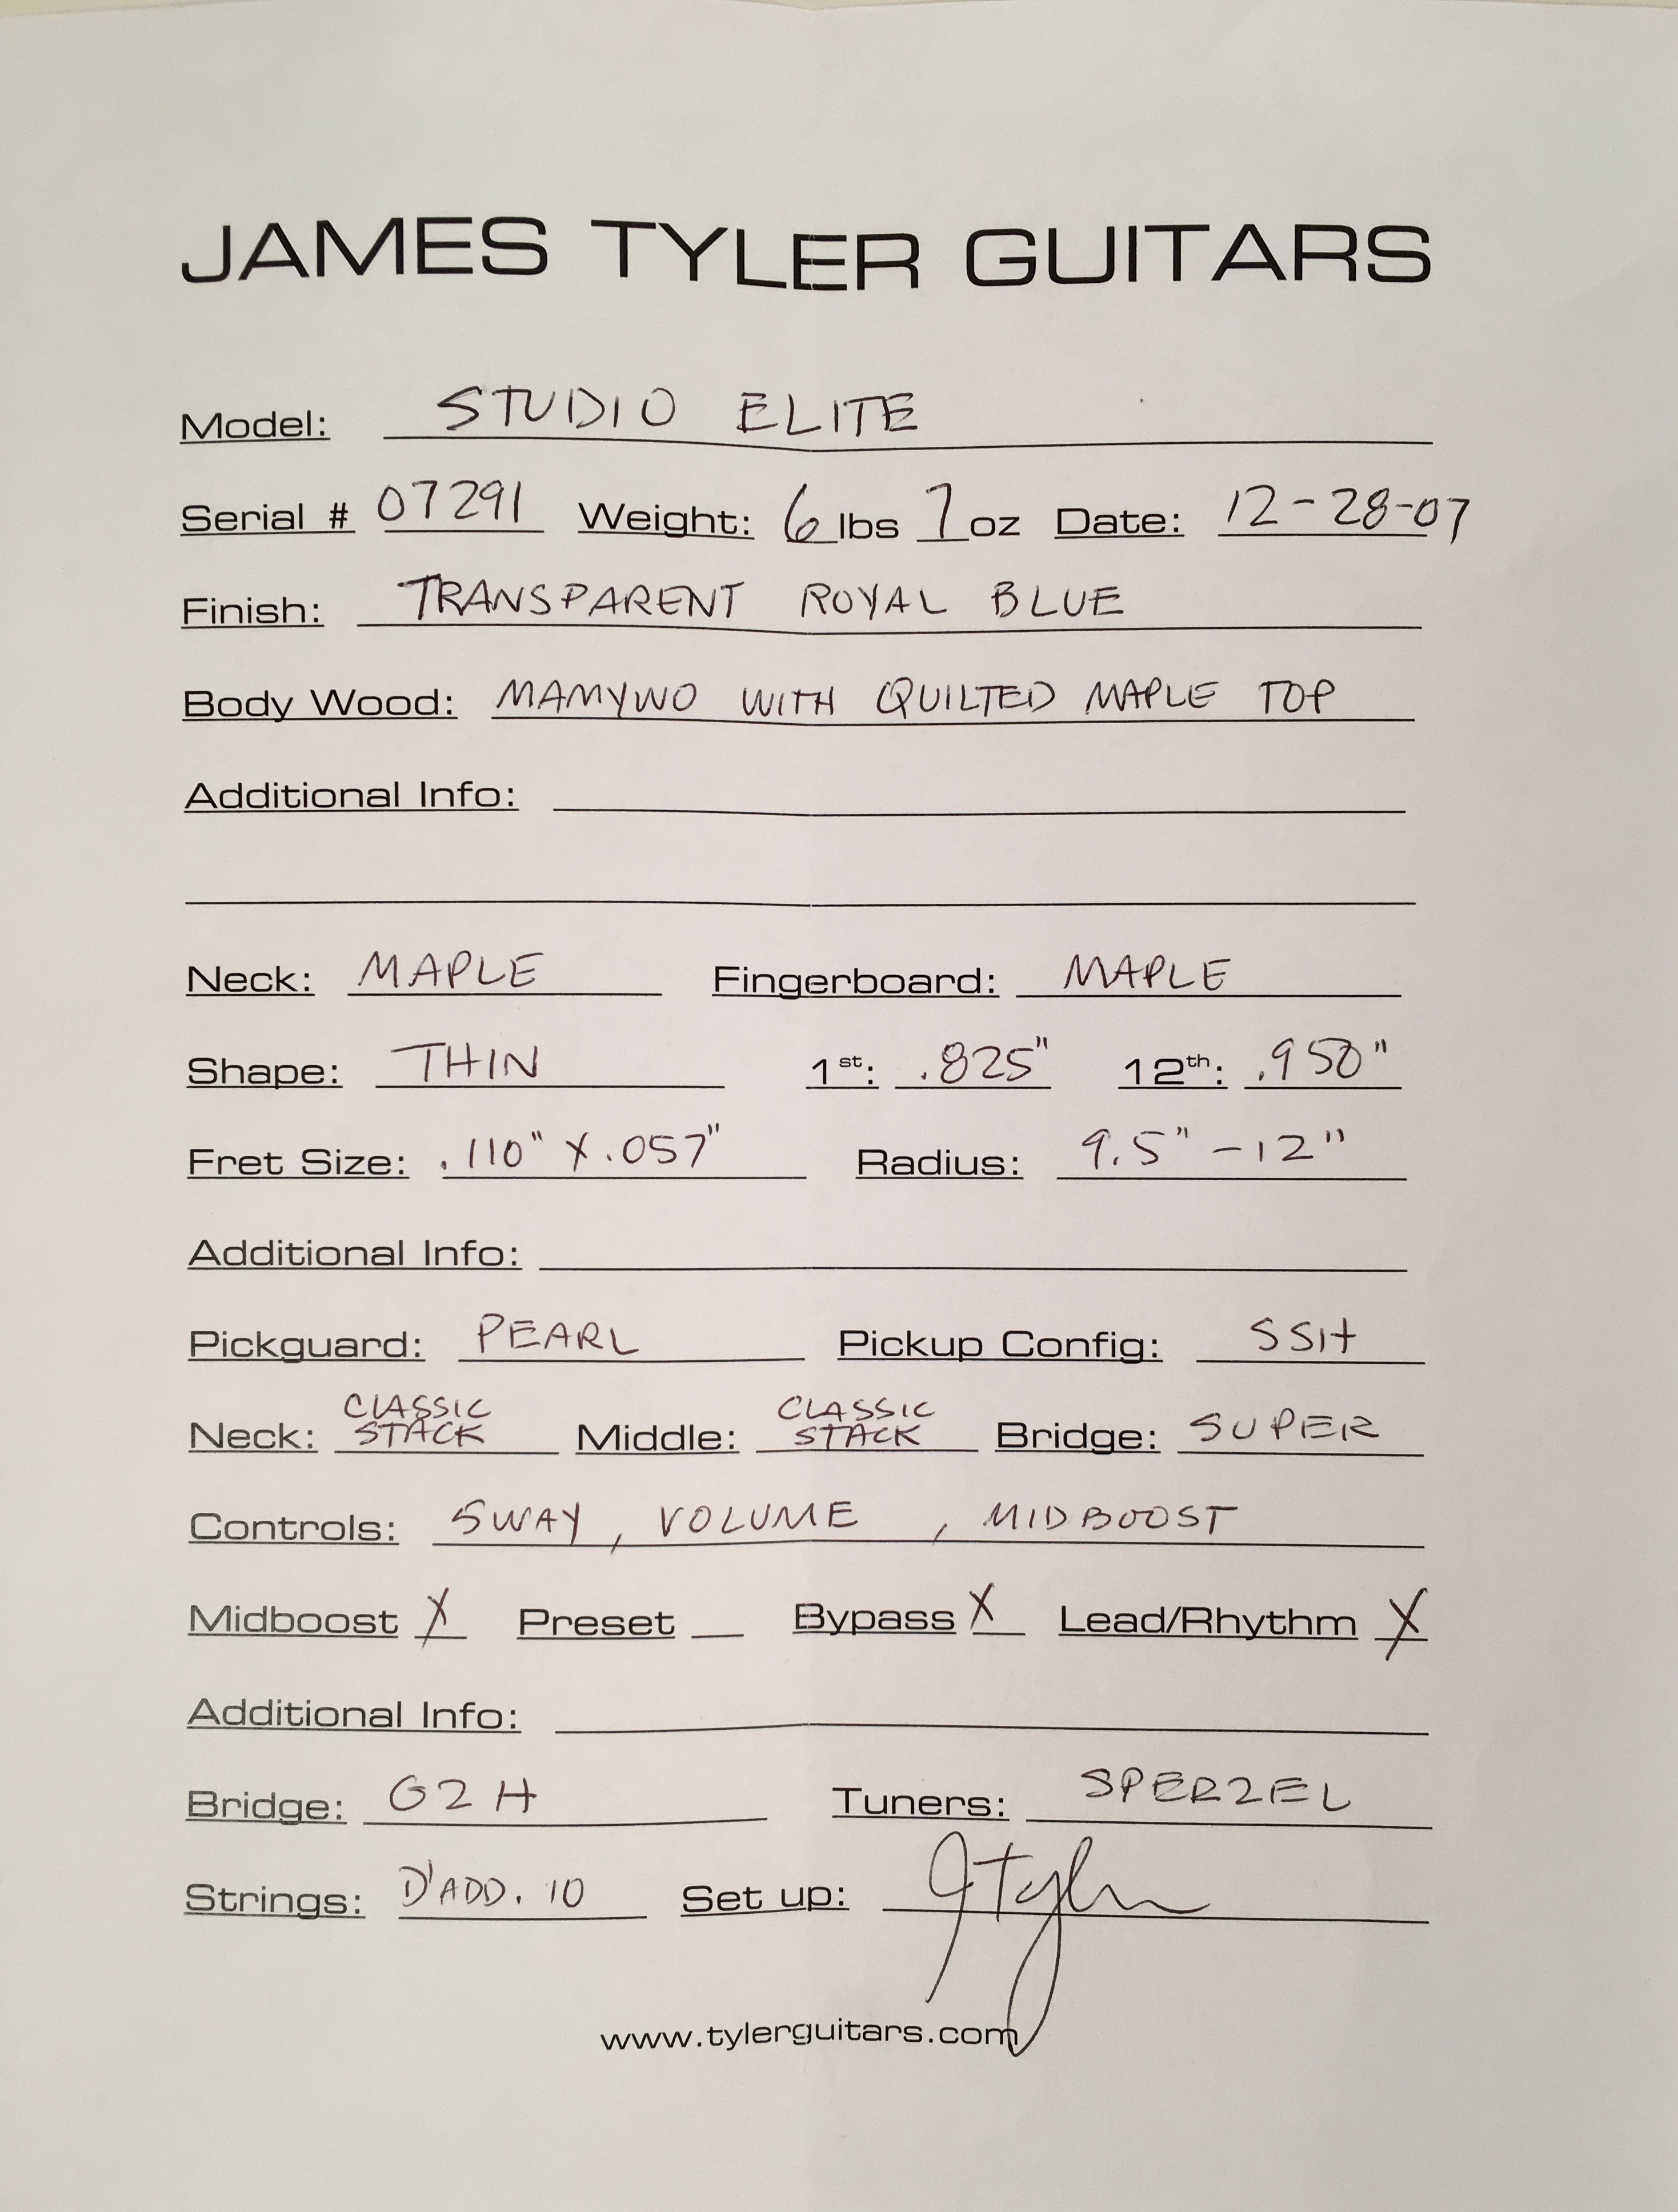 JAMES TYLER GUITARS
Model: STUDIO ELITE
Serial # 07291 Weight: 6 lbs 7 oz Date: 12-28-07
Finish: TRANSPARENT ROYAL BLUE
Body Wood: MAMYWO WITH QUILTED MAPLE TOP
Additional Info:
Neck: MAPLE Fingerboard: MAPLE
Shape: THIN 1st: .825" 12th: .950"
Fret Size: .110" X .057" Radius: 9.5" - 12"
Additional Info:
Pickguard: PEARL Pickup Config: SSH
Neck: CLASSIC STACK Middle: CLASSIC STACK Bridge: SUPER
Controls: SWAY, VOLUME, MIDBOOST
Midboost X Preset Bypass X Lead/Rhythm X
Additional Info:
Bridge: G2H Tuners: SPERZEL
Strings: D'ADD. 10 Set up: JTyler
www.tylerguitars.com